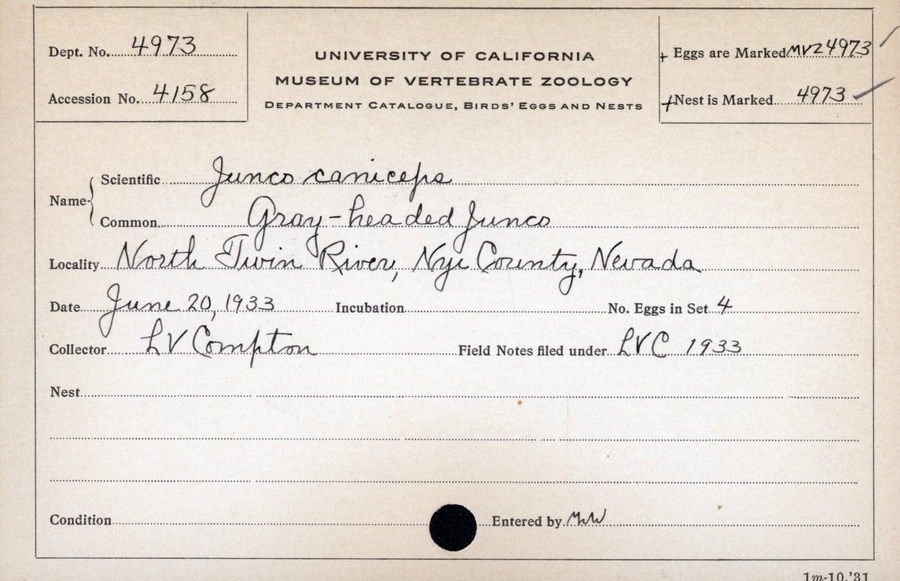 Dept. No. 4973
Accession No. 4158
UNIVERSITY OF CALIFORNIA
MUSEUM OF VERTEBRATE ZOOLOGY
DEPARTMENT CATALOGUE, BIRDS' EGGS AND NESTS
+ Eggs are Marked MVZ 4973 ✓
+ Nest is Marked 4973 ✓
Name { Scientific Junco caniceps
Common Gray-headed Junco
Locality North Twin River, Nye County, Nevada
Date June 20, 1933 Incubation No. Eggs in Set 4
Collector LV Compton Field Notes filed under LVC 1933
Nest
Condition Entered by
1m-10,'31